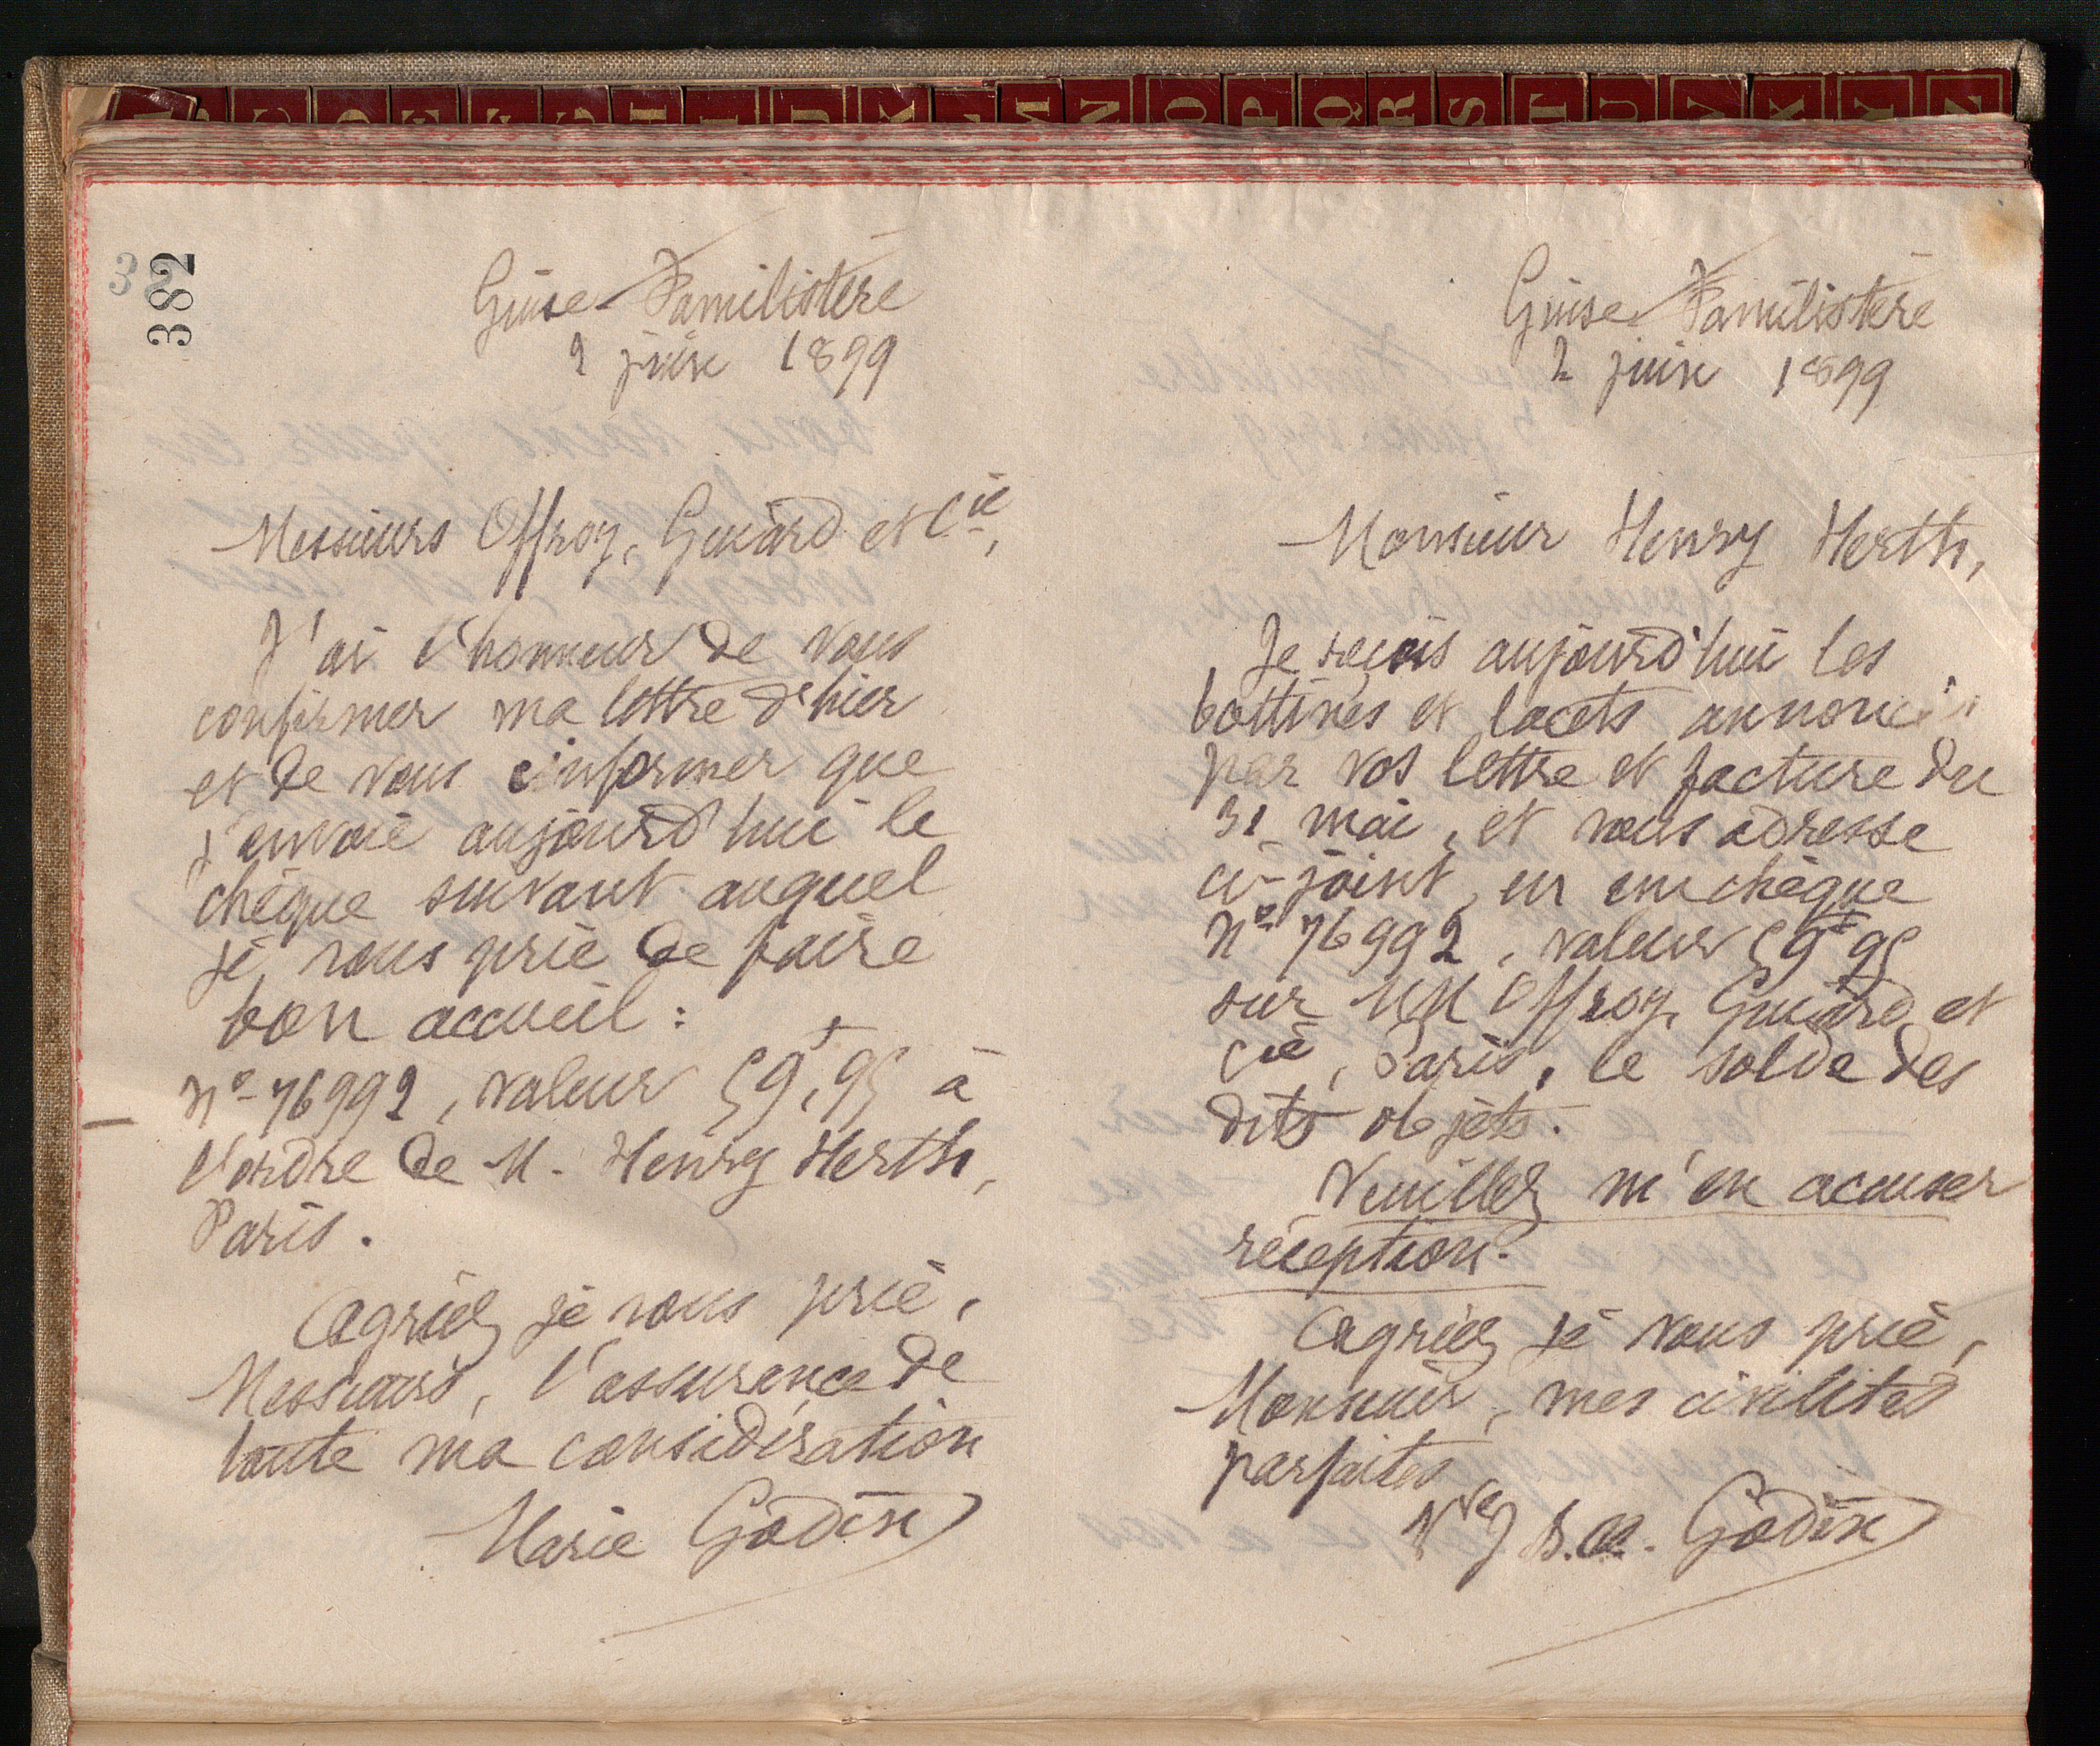 382
Guise Familistère
2 juin 1899
Messieurs Offroy, Guiard et Cie,
J'ai l'honneur de vous
confirmer ma lettre d'hier
et de vous informer que
j'envoie aujourd'hui le
chèque suivant auquel
je vous prie de faire
bon accueil :
No 76992, valeur 59f,95 à
l'ordre de M. Henry Herth,
Paris.
Agréez je vous prie,
Messieurs, l'assurance de
toute ma considération
Marie Godin
Guise Familistère
2 juin 1899
Monsieur Henry Herth,
Je reçois aujourd'hui les
bottines et lacets annoncés
par vos lettre et facture du
31 mai, et vous adresse
ci-joint, en un chèque
No 76992, valeur 59f95
sur MM Offroy, Guiard et
Cie, Paris, le solde des
dits objets.
Veuillez m'en accuser
réception.
Agréez je vous prie,
Monsieur, mes civilités
parfaites
Vve J. B. A. Godin